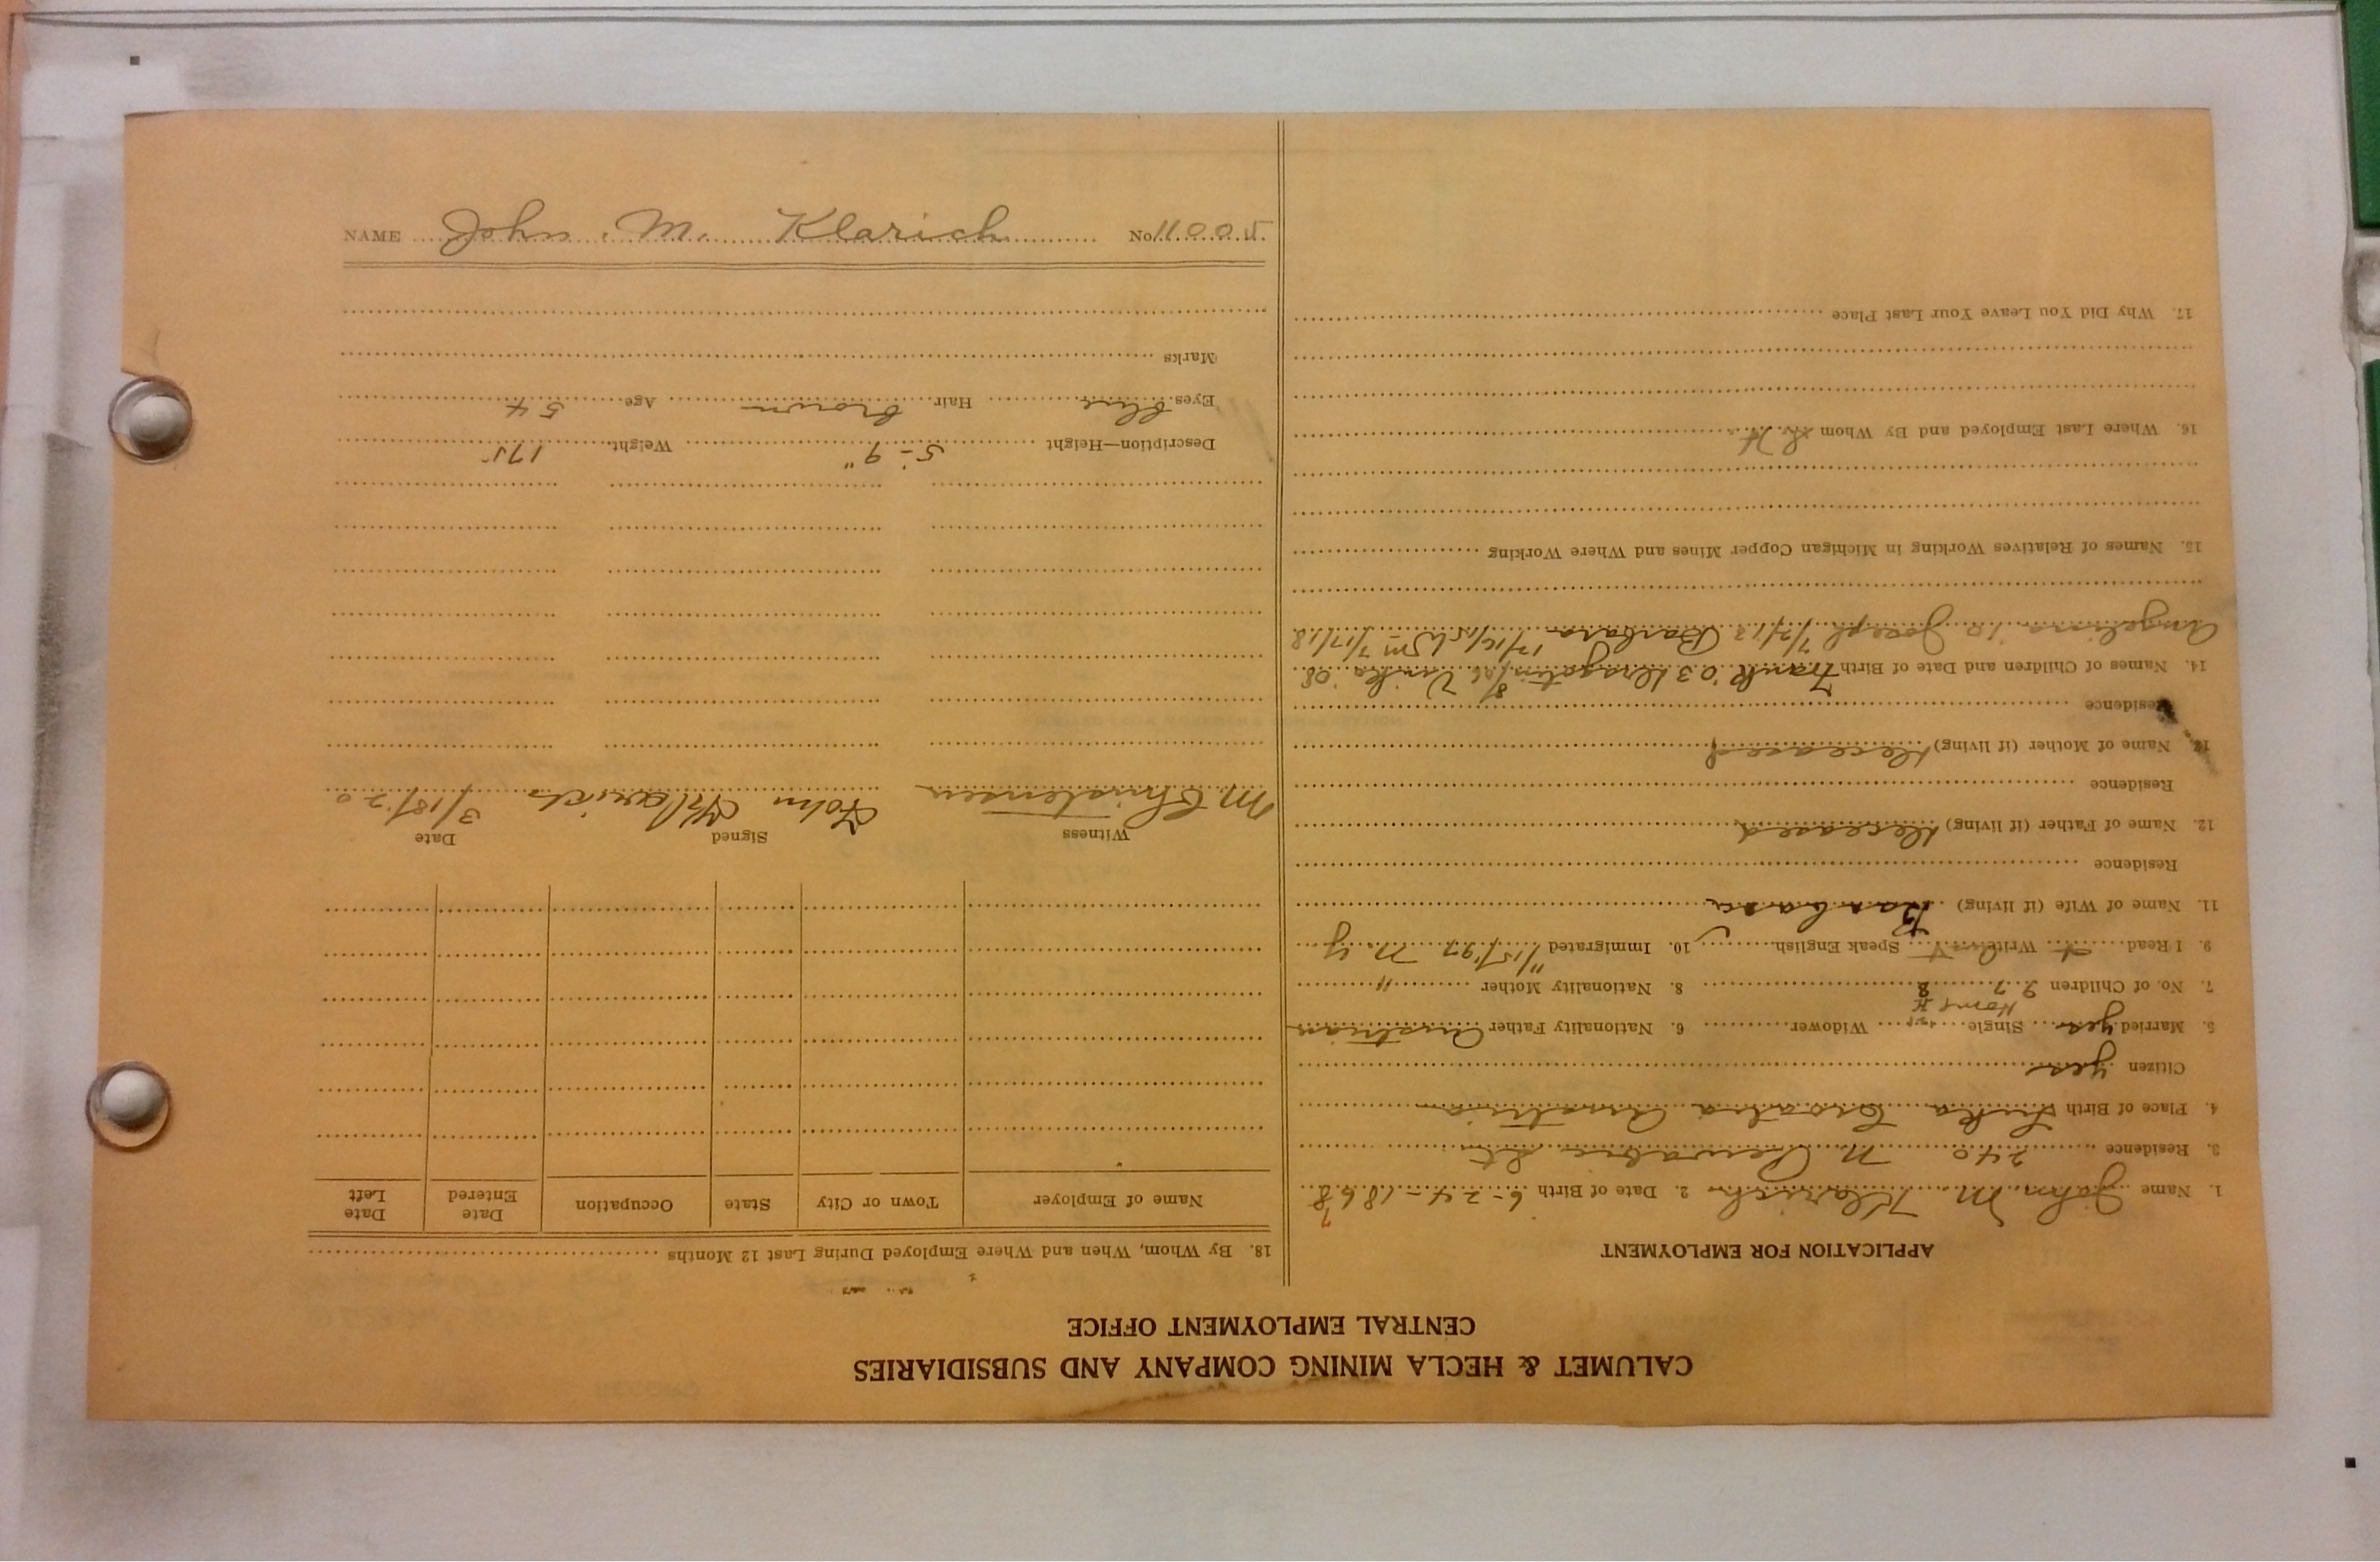 CALUMET & HECLA MINING COMPANY AND SUBSIDIARIES
CENTRAL EMPLOYMENT OFFICE
APPLICATION FOR EMPLOYMENT
1. Name John M. Klarich 2. Date of Birth 6-24-1868
7
3. Residence 240 N. Pewabic St
4. Place of Birth Lika Croatia Austria
Citizen yes
5. Married yes Single Widower 6. Nationality Father Austrian
Home
7. No. of Children 8. Nationality Mother "
9. I Read Write Speak English 10. Immigrated 11/15/97 N.Y
11. Name of Wife (if living) Barbara
Residence
12. Name of Father (if living) Deceased
Residence
13. Name of Mother (if living) Deceased
Residence
14. Names of Children and Date of Birth Frank '03 '08
Angelina '10 Joseph Barbara 7/17/18
15. Names of Relatives Working in Michigan Copper Mines and Where Working
16. Where Last Employed and By Whom
17. Why Did You Leave Your Last Place
18. By Whom, When and Where Employed During Last 12 Months
Name of Employer Town or City State Occupation Date Entered Date Left
Witness Signed Date
M Christensen John Klarich 3/18/20
Description—Height 5-9" Weight 175
Eyes blue Hair brown Age 54
Marks
NAME John M. Klarich No. 11005